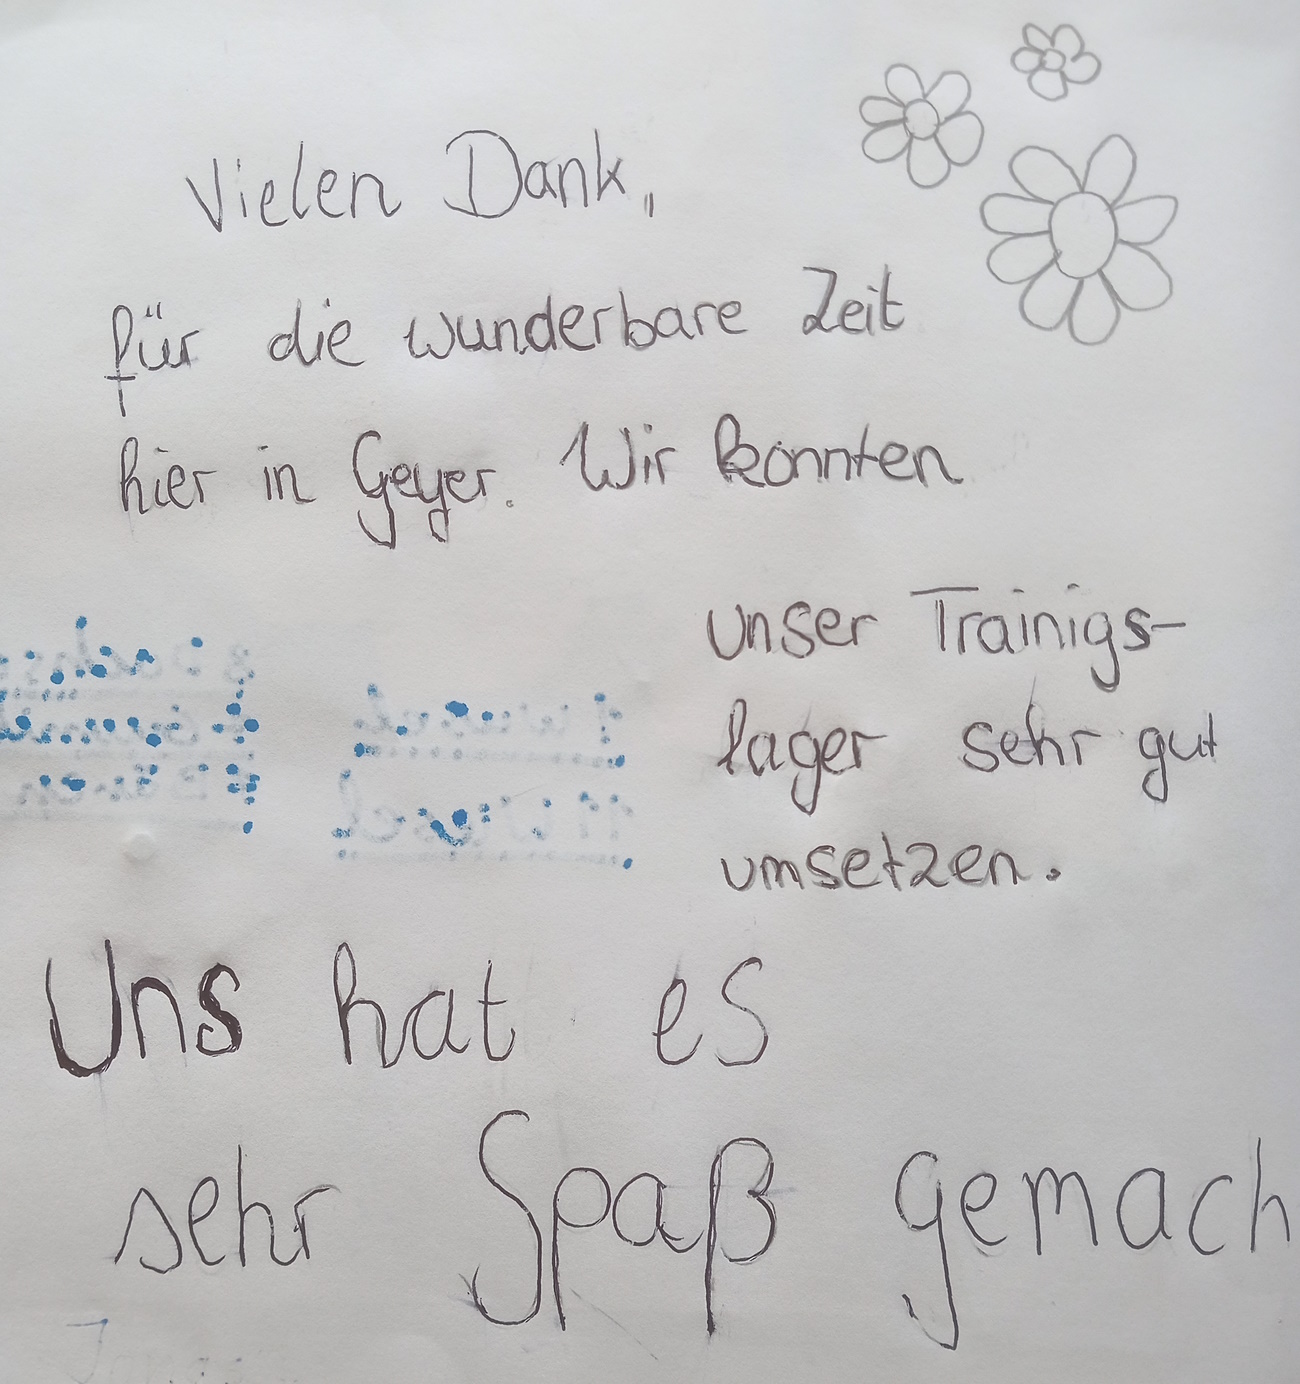 Vielen Dank,
für die wunderbare Zeit
hier in Geyer. Wir konnten
unser Trainigs-
lager sehr gut
umsetzen.
Uns hat es
sehr Spaß gemach